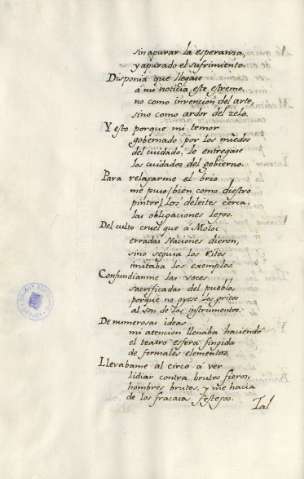 sin apurar la esperanza,
y apurado el sufrimiento.
Disponia que llegase
a mi noticia este estremo,
no como invencion del arte,
sino como ardor del zelo.
Y esto porque mi temor
gobernado por los miedos
del cuidado, le entregase
los cuidados del gobierno.
Para relajarme el brio
me puso (bien como diestro
pintor) los deleites cerca,
las obligaciones lejos.
Del culto cruel que a Moloc
erradas Naciones dieron,
sino seguia los Ritos
imitaba los exemplos.
Confundianme las voces
sacrificadas del pueblo,
porque no oyese los gritos
al son de los instrumentos.
De numerosas ideas
mi atencion llenaba haciendo
el teatro esfera fingida
de formales elementos.
Llevabame al circo a ver
lidiar contra brutos fieros,
hombres brutos, y me hacia
de los festejos.
Tal